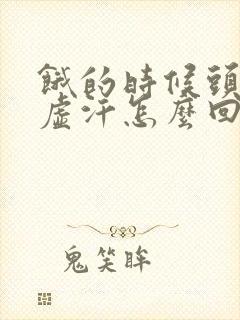 餓的時候頭
虛汗怎麼回
鬼笑眸